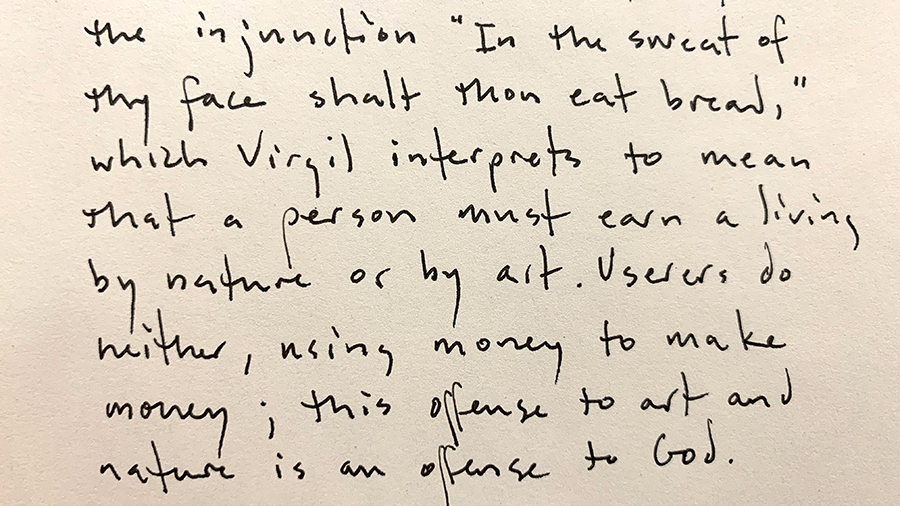 the injunction "In the sweat of
thy face shalt thou eat bread,"
which Virgil interprets to mean
that a person must earn a living
by nature or by art. Userers do
neither, using money to make
money; this offense to art and
nature is an offense to God.